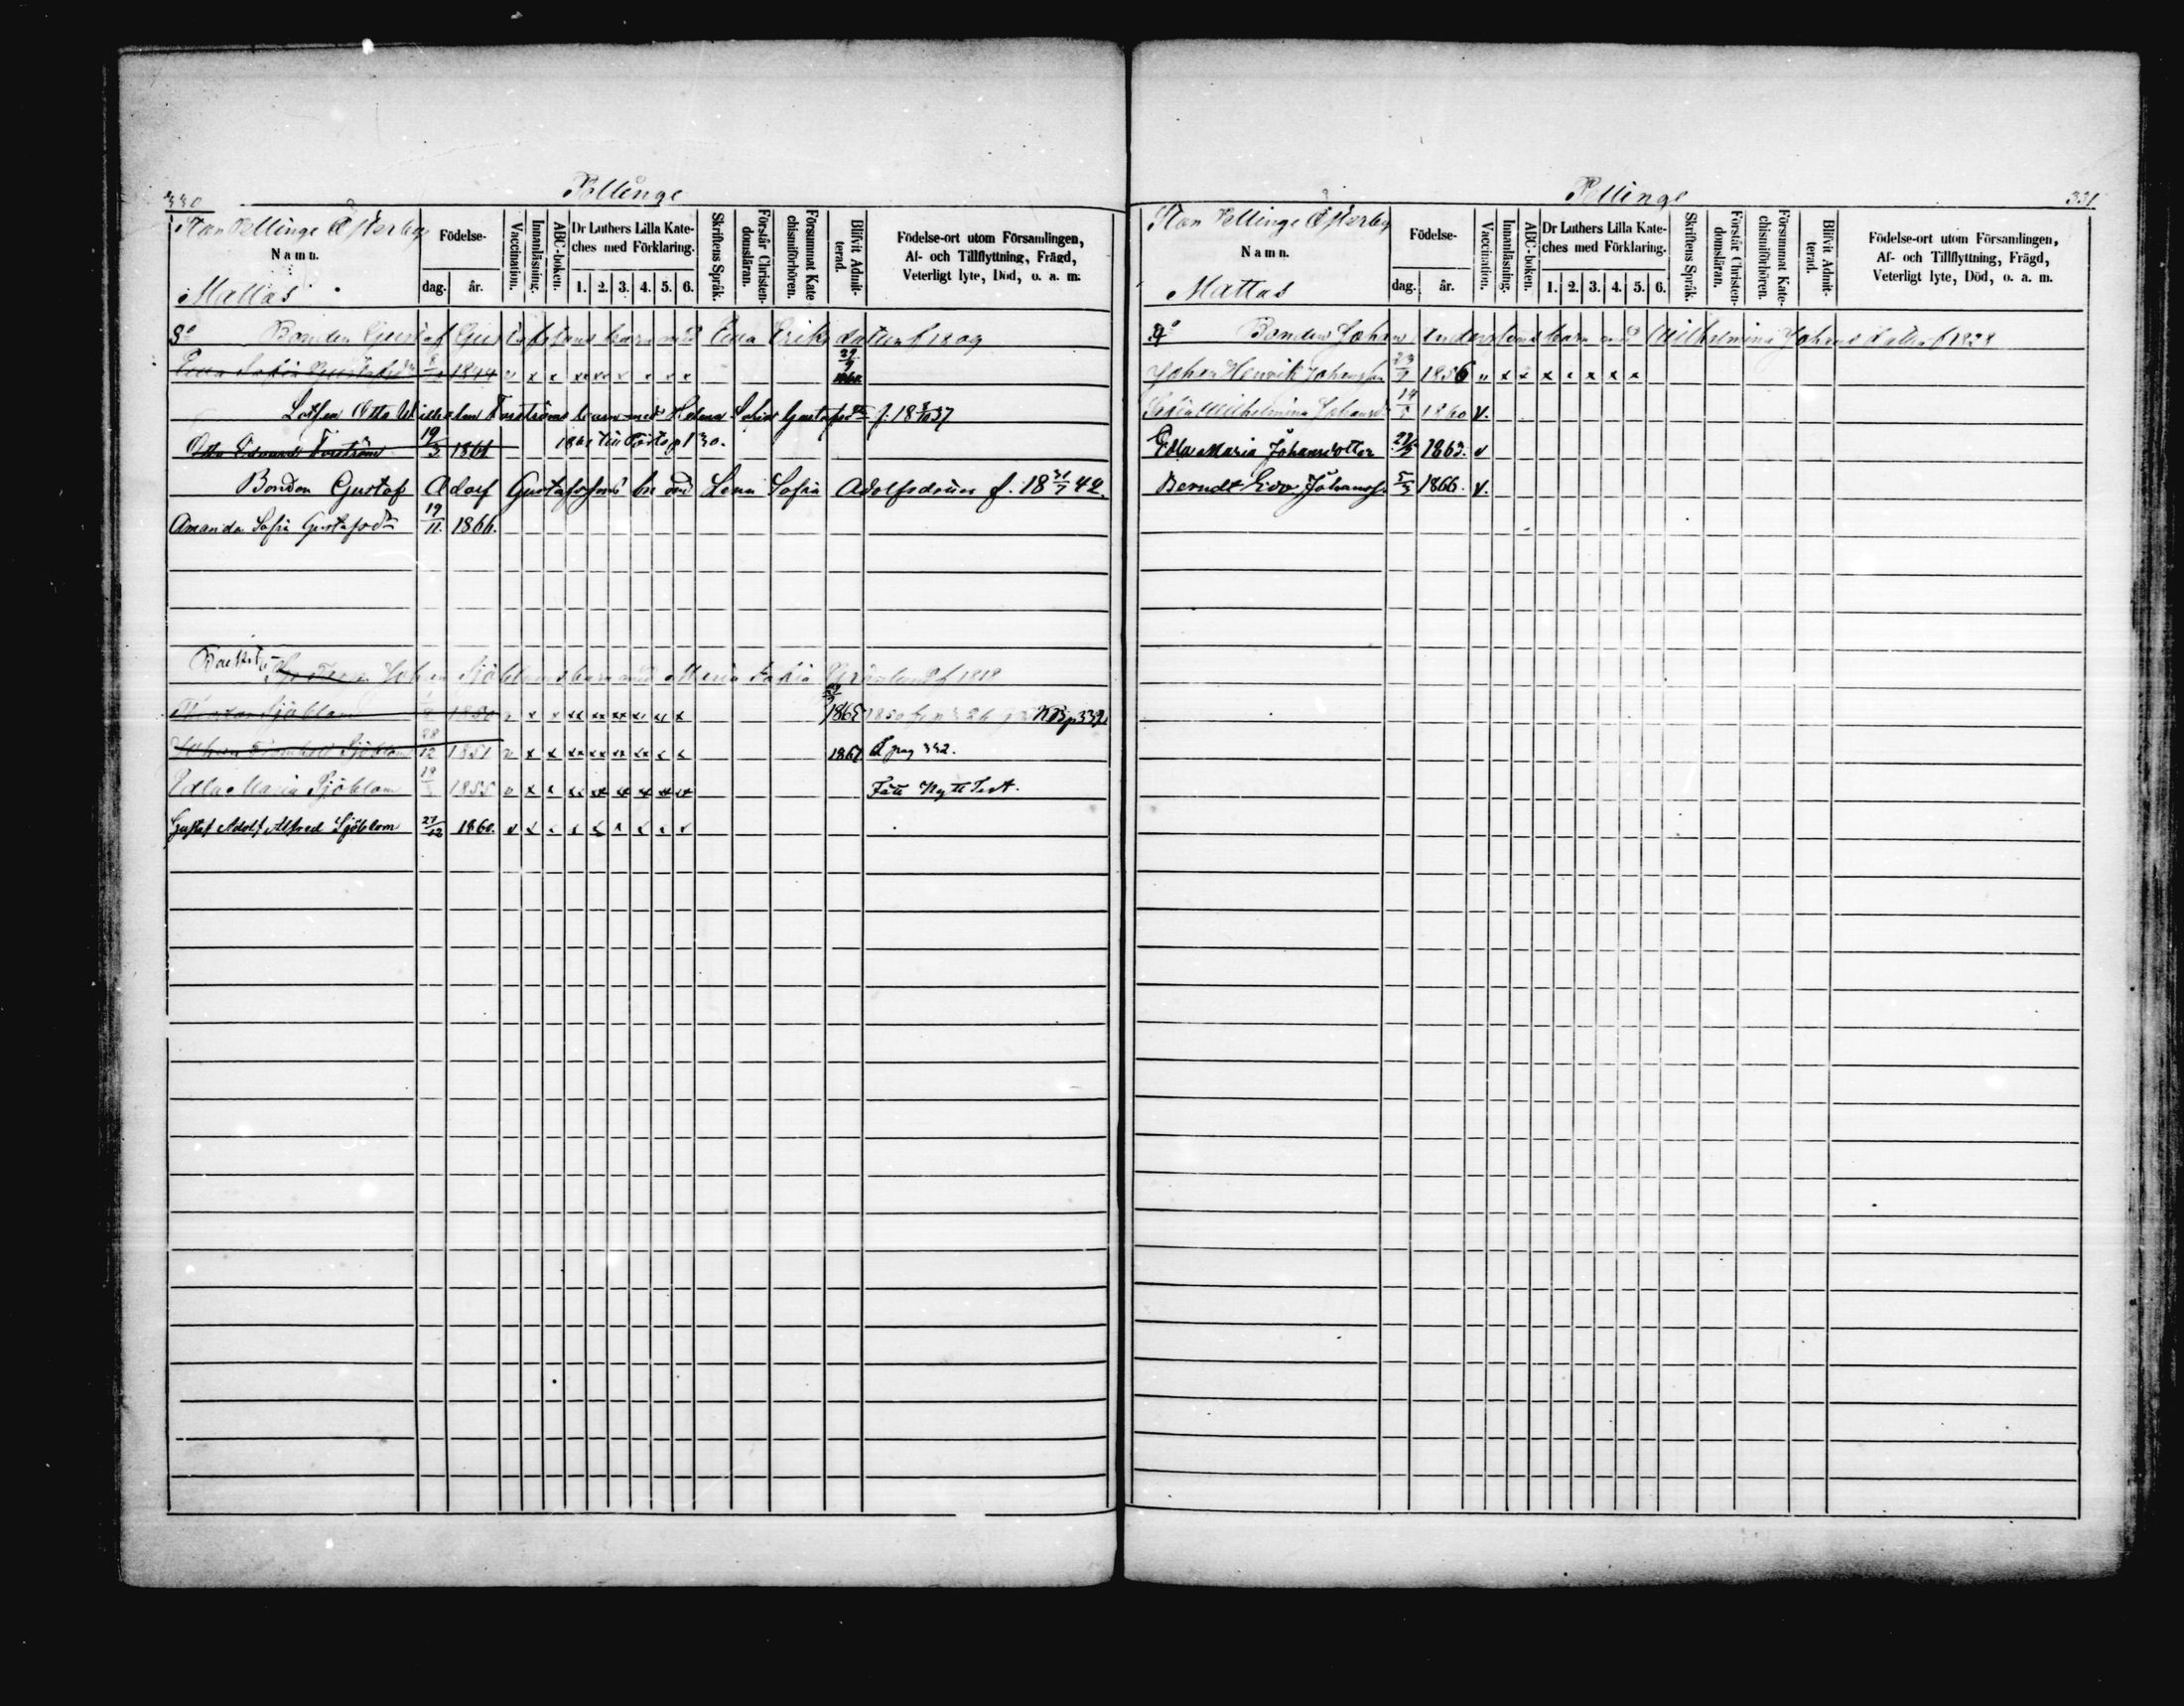 330
Pellinge
Stor Pellinge Österby
Namn.
Mattas
Födelse-
dag.
år.
Vaccination.
Innanläsning.
ABC-boken.
Dr Luthers Lilla Kate-
ches med Förklaring.
1. 2. 3. 4. 5. 6.
Skriftens Språk.
Förstår Christen-
domsläran.
Försummat Kate
chismiförhören.
Blifvit Admit-
terad.
Födelse-ort utom Församlingen,
Af- och Tillflyttning, Frägd,
Veterligt lyte, Död, o. a. m.
3º Bonden Gustaf barn med Lena Eriks dotter f 1809
Lena Sofia Gustafsdr 1844 v x x xx xx x x x x
Lotsen Otto Wilhelm Forströms barn med Helena Sofia Gustafsdr f. 18 37
Otto Edvard Forström 19/3 1861
Bonden Gustaf Adolf Gustafssons bn med Lena Sofia Adolfsdotter f. 18 31/7 42.
Amanda Sofia Gustafsdr 19/11. 1866.
Johan Sjöbloms barn med Maria Sofia f 1818
Sjöblom 1850 v x x xx xx xx xx xx x 1865
Johan Sjöblom 28/12 1851 v x x xx xx xx xx x x 1867 pag 332.
Edla Maria Sjöblom 19 1855 v x x xx xx xx xx xx xx Fått Nytt Test.
Gustaf Adolf Alfred Sjöblom 21/12 1860. v x x x x x x x x
Pellinge
331
Stor Pellinge Österby
Namn.
Mattas
Födelse-
dag.
år.
Vaccination.
Innanläsning.
ABC-boken.
Dr Luthers Lilla Kate-
ches med Förklaring.
1. 2. 3. 4. 5. 6.
Skriftens Språk.
Förstår Christen-
domsläran.
Försummat Kate-
chismiförhören.
Blifvit Admit-
terad.
Födelse-ort utom Församlingen,
Af- och Tillflyttning, Frägd,
Veterligt lyte, Död, o. a. m.
4º Bonden Johan Anderssons barn med Wilhelmina Johans dotter f 1828
Johan Henrik Johansson 1856 v x x x x x x x
Wilhelmina Johansdr 1860 v.
Edla Maria Johansdotter 1863. v
Berndt Edv. Johansson 5/3 1866. v.